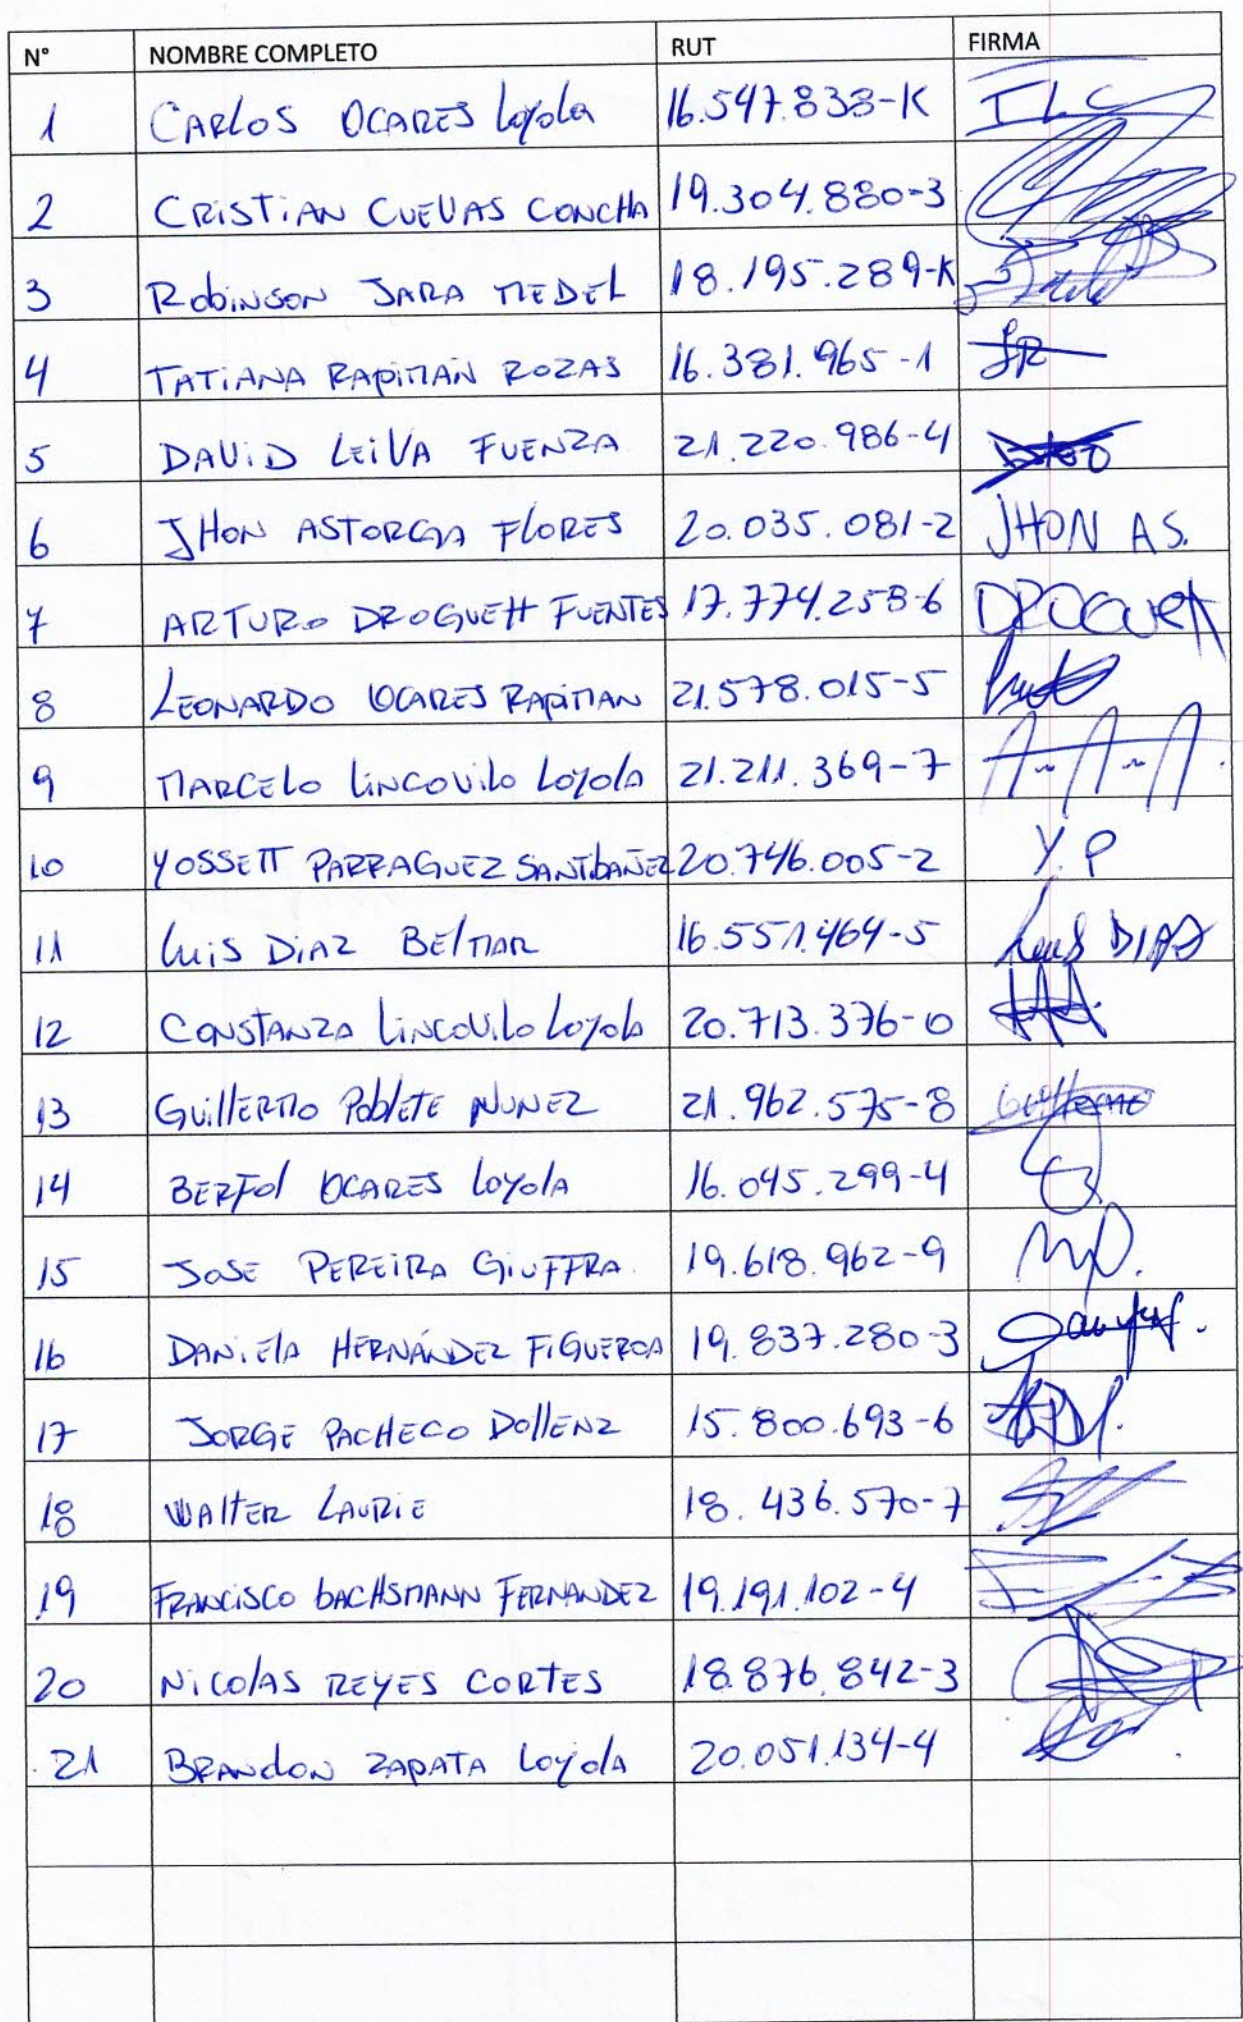 N° NOMBRE COMPLETO RUT FIRMA
1 CARLOS OCARES Loyola 16.547.838-K
2 CRISTIAN CUEVAS CONCHA 19.304.880-3
3 Robinson JARA MEDEL 18.195.289-K
4 TATIANA RAPIMAN ROZAS 16.381.965-1
5 DAVID LEIVA FUENZA 21.220.986-4
6 JHON ASTORGA FLORES 20.035.081-2 JHON AS.
7 ARTURO DROGUETT FUENTES 17.774.258-6 DROGUETT
8 LEONARDO OCARES RAPIMAN 21.578.015-5
9 MARCELO LINCOVILO LOYOLA 21.211.369-7
10 YOSSETT PARRAGUEZ SANTIBAÑEZ 20.746.005-2 Y.P
11 Luis DIAZ BELMAR 16.551.464-5 Luis DIAZ
12 CONSTANZA LINCOVILO LOYOLA 20.713.376-0
13 GUILLERMO POBLETE NUNEZ 21.962.575-8 Guillermo
14 BERFOL OCARES LOYOLA 16.045.299-4
15 JOSE PEREIRA GIUFFRA. 19.618.962-9
16 DANIELA HERNÁNDEZ FIGUEROA 19.837.280-3
17 JORGE PACHECO DOLLENZ 15.800.693-6
18 WALTER LAURIE 18.436.570-7
19 FRANCISCO BACHSMANN FERNANDEZ 19.191.102-4
20 NICOLAS REYES CORTES 18.876.842-3
21 BRANDON ZAPATA LOYOLA 20.051.134-4